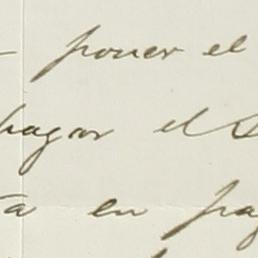 poner el
pagar el
ta en pa